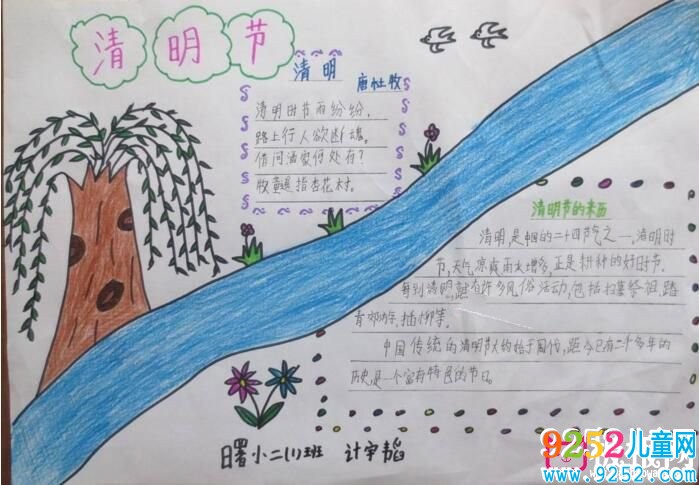 清明节
清明
唐杜牧
清明时节雨纷纷,
路上行人欲断魂。
借问酒家何处有?
牧童遥指杏花村。
清明节的来历
清明是中国的二十四节气之一。清明时
节,天气凉爽雨水增多,正是耕种的好时节。
每到清明就有许多风俗活动,包括扫墓祭祖、踏
青郊游、插柳等。
中国传统的清明节大约始于周代,距今已有二千多年的
历史,是一个富有特色的节日。
日署小二(1)班 计宇韬
9252儿童网
www.9252.com